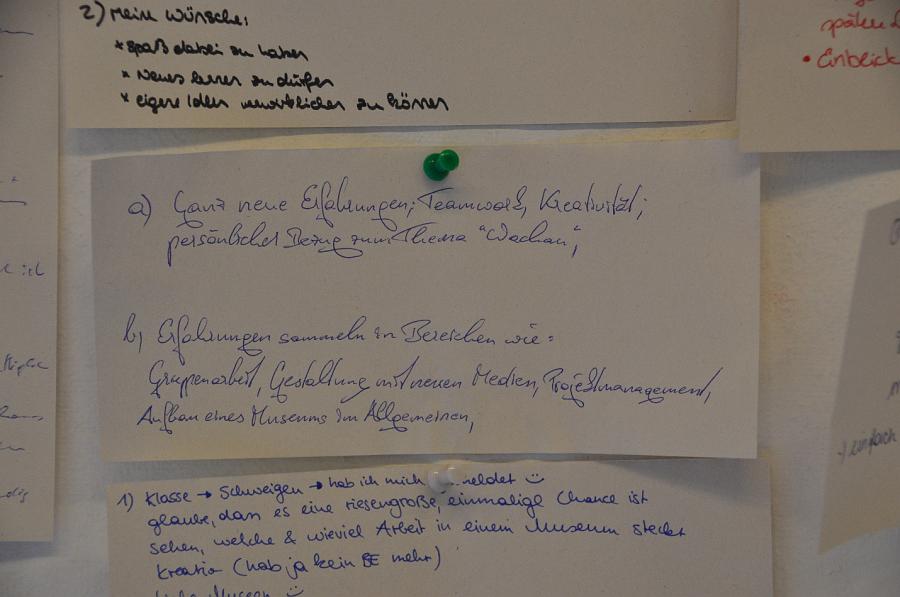 2) Meine Wünsche:
* Spaß dabei zu haben
* Neues lernen zu dürfen
* eigene Ideen verwirklichen zu können
später
• Einblick
a) Ganz neue Erfahrungen; Teamwork, Kreativität;
persönlicher Bezug zum Thema "Wachau";
b) Erfahrungen sammeln in Bereichen wie:
Gruppenarbeit, Gestaltung mit neuen Medien, Projektmanagement,
Aufbau eines Museums im Allgemeinen,
→ einfach
1) Klasse → Schweigen → hab ich mich meldet ☺
glaube, dass es eine riesengroße, einmalige Chance ist
sehen, welche & wieviel Arbeit in einem Museum steckt
kreativ (hab ja kein BE mehr)